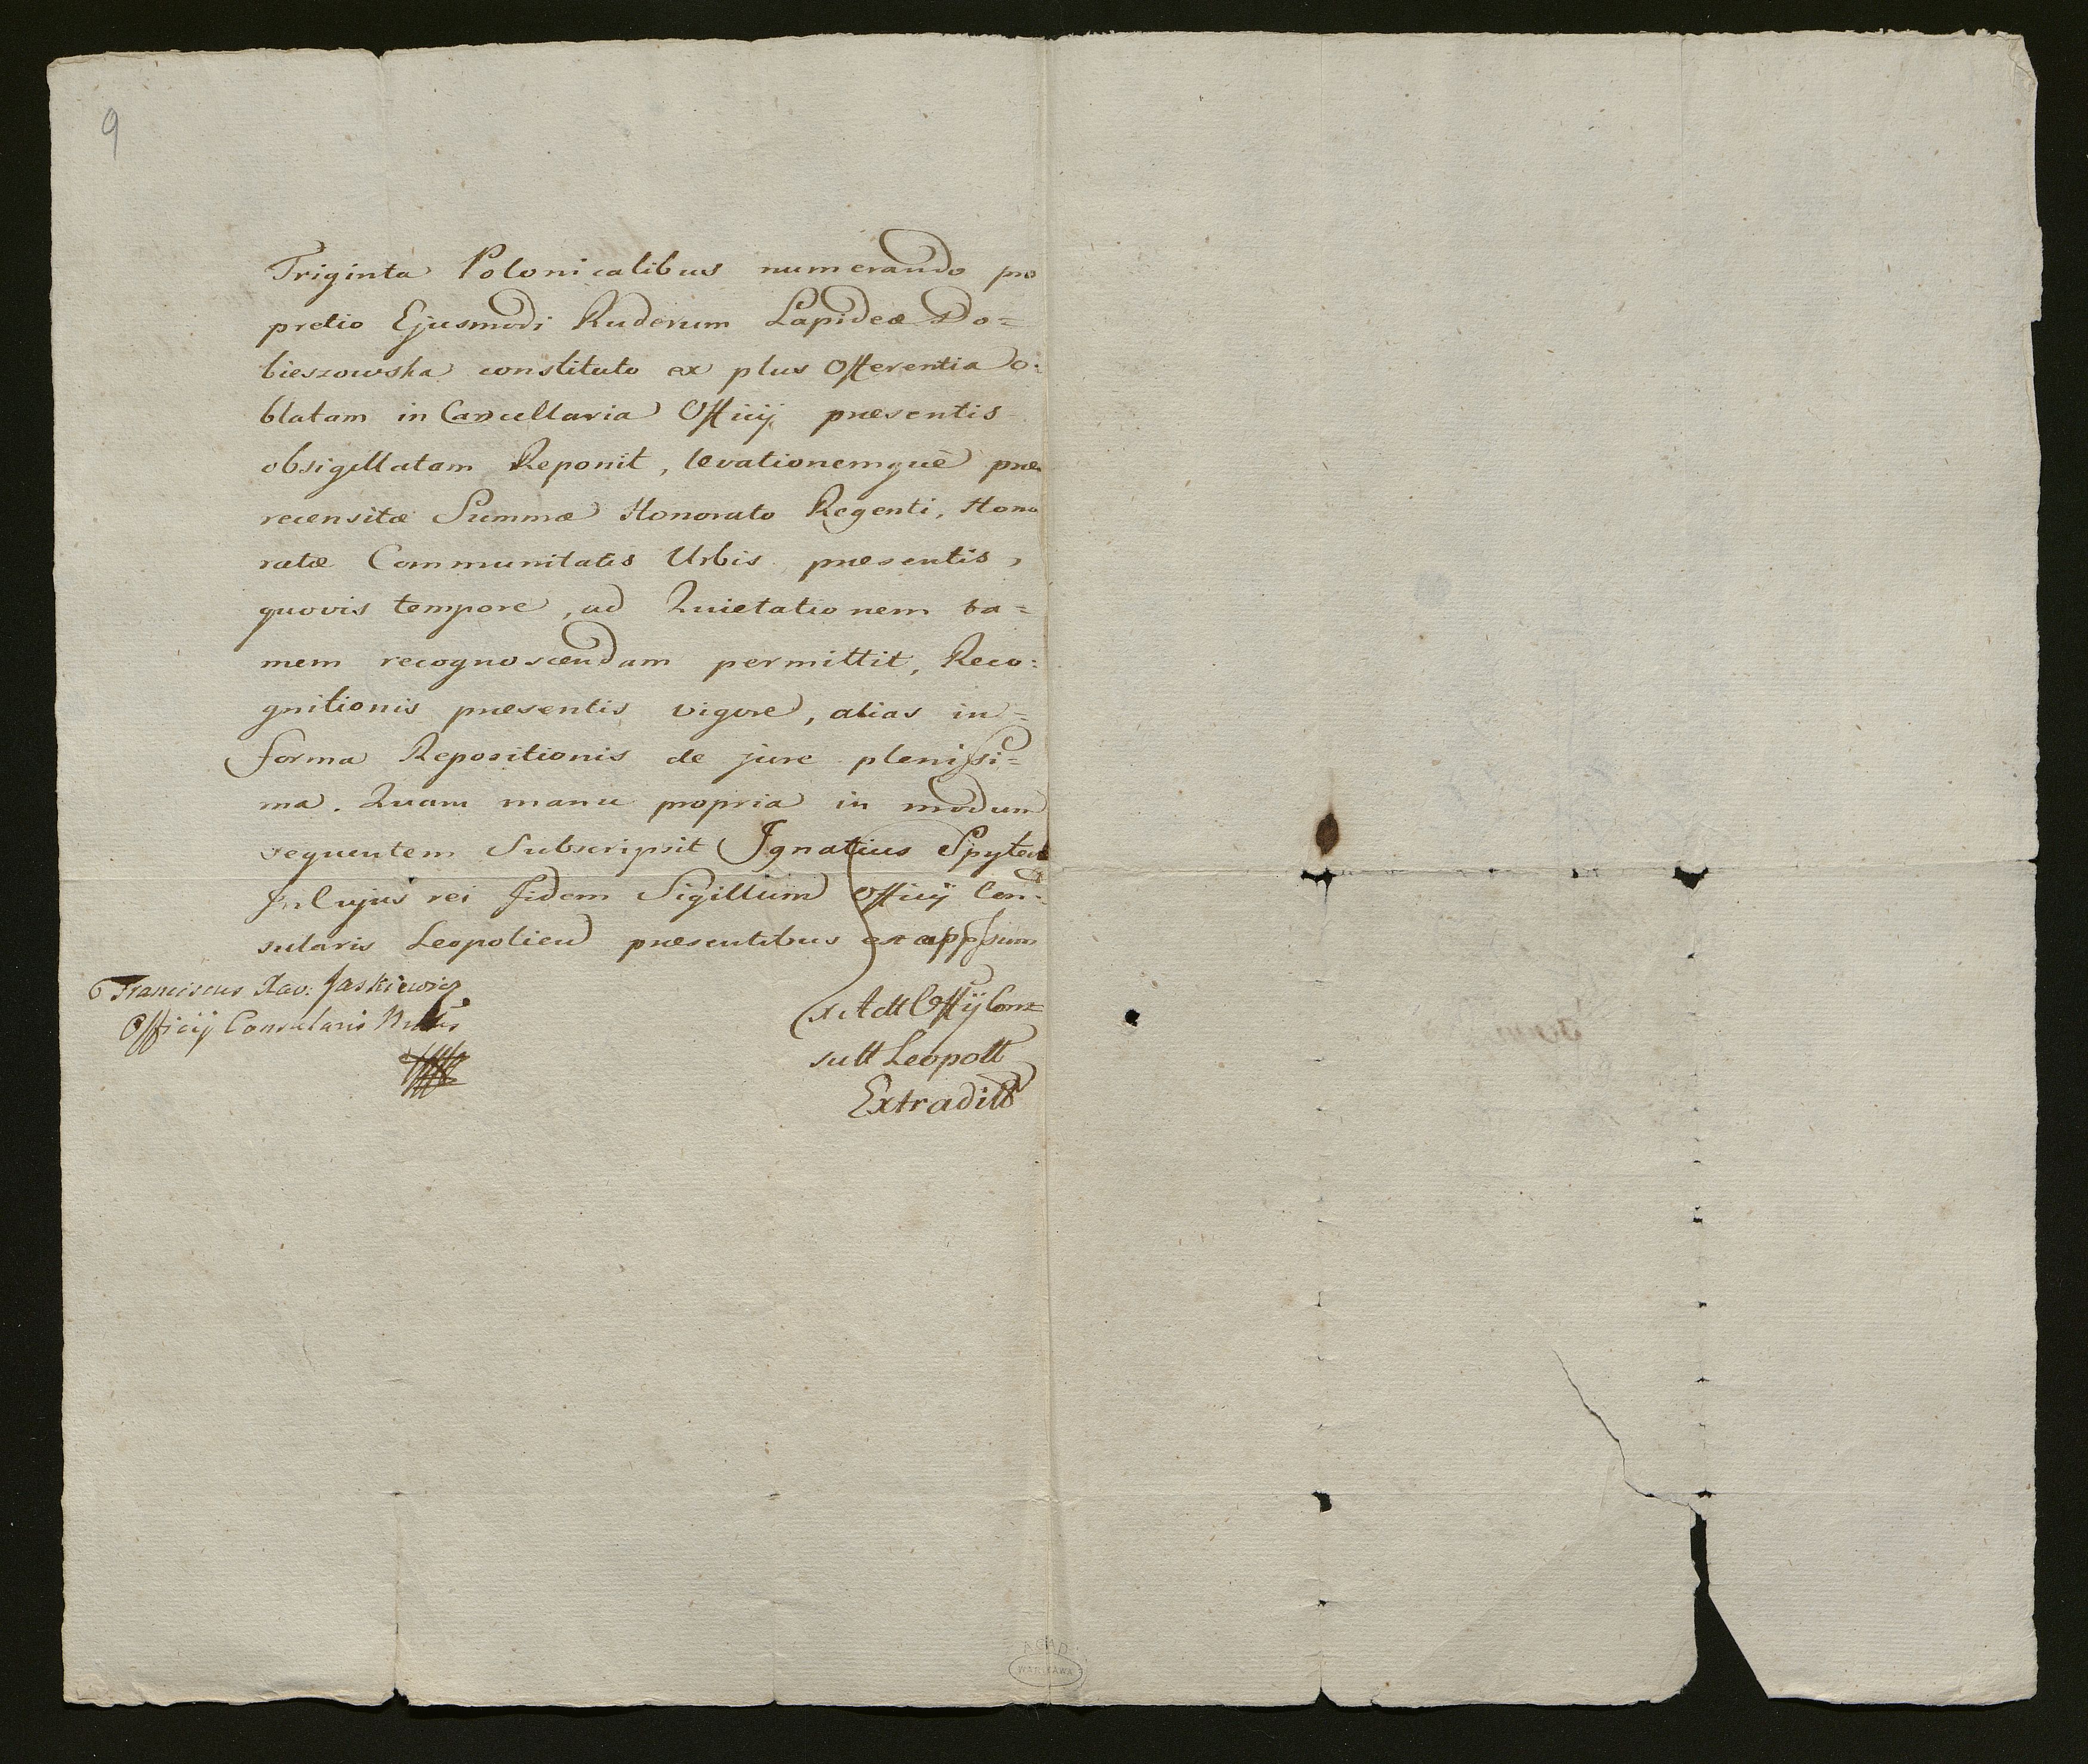 9
Triginta Polonicalibus numerando pro
pretio Ejusmodi Ruderum Lapideæ Do=
bieszowska constituto ex plus Offerentia o:
blatam in Cancellaria Officij præsentis
obsigillatam Reponit, levationemque præ
recensitæ Summæ Honorato Regenti, Hono
ratæ Communitatis Urbis præsentis,
quovis tempore, ad Quietationem ta=
mem recognoscendam permittit, Reco:
gnitionis præsentis vigore, alias in=
forma Repositionis de jure plenissi=
ma. Quam manu propria in modum
sequentem Subscripsit Ignatius
In Cujus rei fidem Sigillum Officij Con:
sularis Leopolien præsentibus est
Franciscus Xav: Jaskiewicz
Officij Consularis
Ex Actt Offij Con=
sull Leopoll
Extradit
AGAD
WARSZAWA